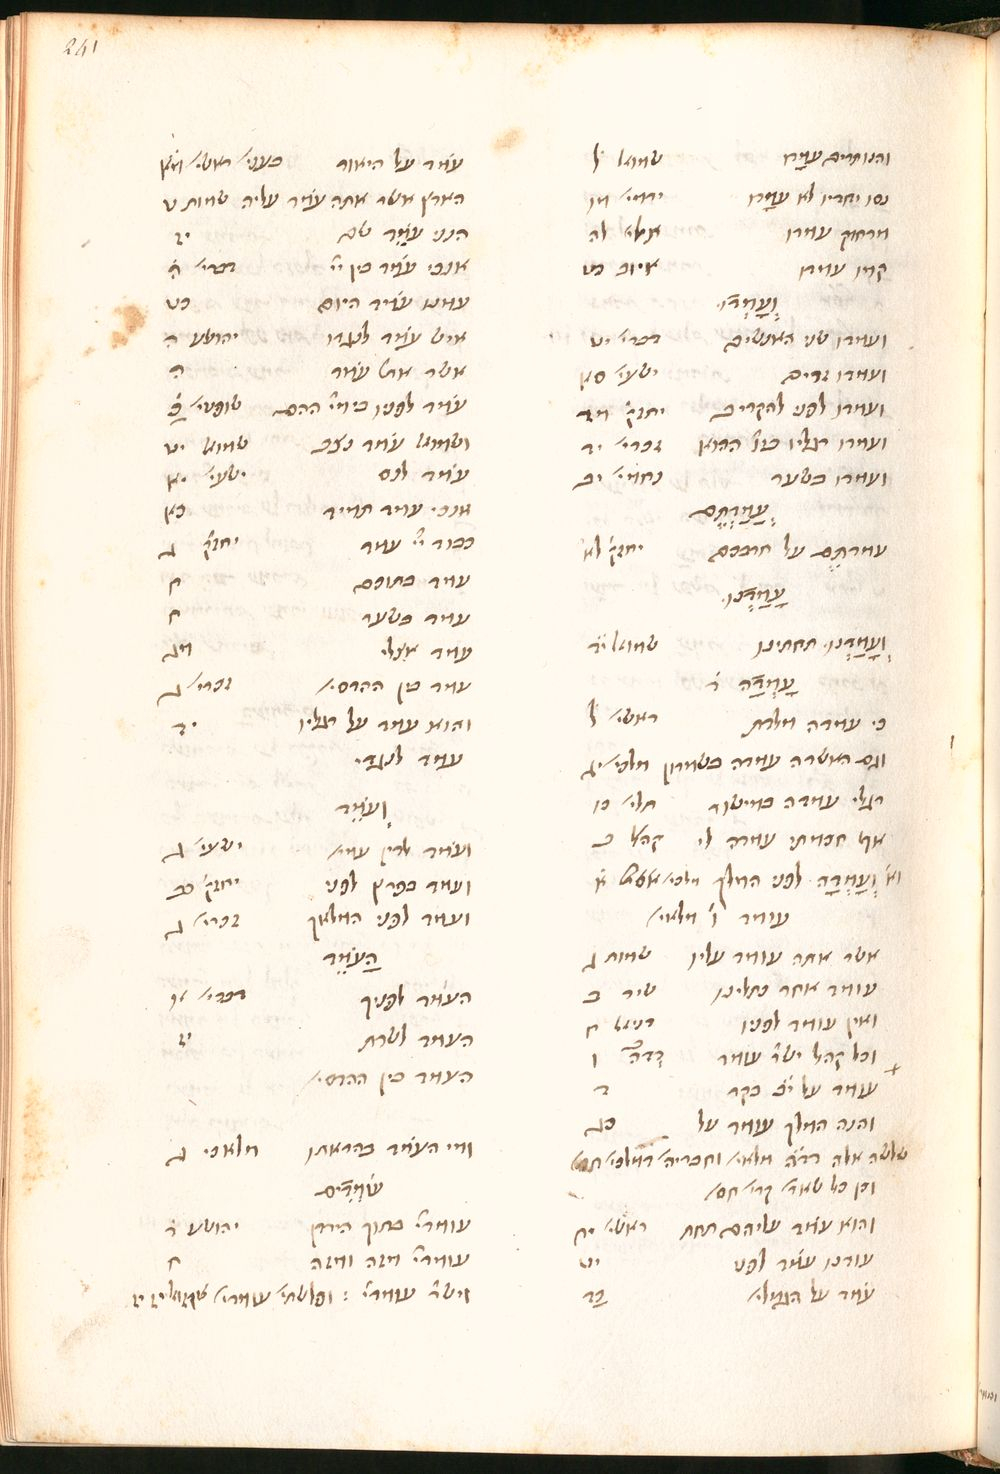 241
והנותרים עמדו שמואל ל
נסו יחדיו לא עמדו ירמי׳ מו
מרחוק עמדו תלי׳ לח
קמו עמדו איוב כט
וְעָמְדוּ
ועמדו שני האנשים דברי׳ יט
ועמדו זרים ישעי׳ סא
ועמדו לפני להקריב יחזק׳ מד
ועמדו רגליו ביו׳ ההוא זכרי׳ יד
ועמדו בשער נחמי׳ יב
עֲמַדְתֶּם
עמדתם על חרבכם יחזק׳ לג
עָמַדְנוּ
וְעָמַדְנוּ תחתינו שמואל יד
עָמְדָה ו׳
כי עמדה מלדת ראשי׳ ל
וגם האשרה עמדה בשמרון מלכי׳ יג
רגלי עמדה במישור תלי׳ כו
אף חכמתי עמדה לי קהל׳ ב
וא׳ וְעָמְדָה לפני המלך מלכי׳ א׳
עומד ו׳ מלאי׳
אשר אתה עומד עליו שמות ג
עומד אחר כתלינו שיר ב
ואין עומד לפניו דניאל ח
וכל קהל ישר׳ עומד ו
עומד על י״ב בקר ד
והנה המלך עומד על כג
שלשה אלה דד״ה מלאי׳ וחבריה׳ דמלכי׳ חס׳
וכן כל שאר׳ קרי׳ חס׳
והוא עמד עליהם תחת ראשי׳ יח
עודנו עמד לפני יט
עמד על הגמלי׳ כד
עמד על היאור ראשי׳ מא
הארץ אשר אתה עמד עליה שמות
הנני עמד שם יז
אנכי עמד בין יי׳ דברי׳ ה
עמנו עמד היום כט
איש עמד לנגדו יהושע ה
אשר אתה עמד ה
עמד לפניו בימי׳ ההם שופטי׳ כ
ושמואל עמד נצב שמואל יט
עמד לנס ישעי׳ יא
אנכי עמד תמיד כא
כבוד יי׳ עמד יחזק׳ ג
עמד בתוכם ח
עמד בשער ח
עמד אצלי מג
עמד בין ההדסי׳ זכרי׳ ג
והוא עמד על רגליו יד
עמד לנגדי
וְעֹמֵד
ועמד לדין עמי׳ ישעי׳ ג
ועמד בפרץ לפני יחזק׳ כב
ועמד לפני המלאך זכרי׳ ג
הָעֹמֵד
העמד לפניך דברי׳ א
העמד לשרת יז
העמד בין ההדסי׳
ומי העמד בהראתו מלאכי ג
עֹמְדִים
עומדי׳ בתוך הירדן יהושע ד
עומדי׳ מזה ומזה ח
וישר׳ עומדי׳ : ופלשתי׳ עומדי׳ שמואל יז